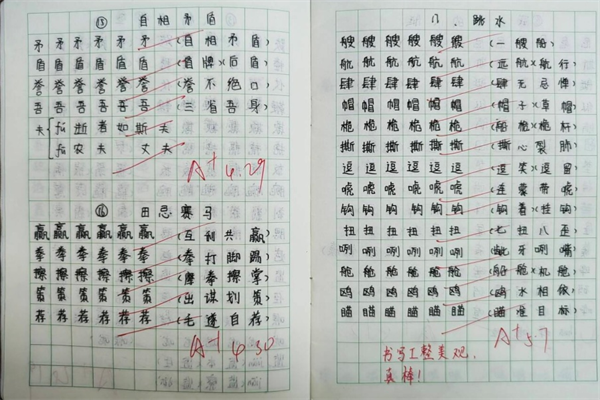 ⑮ 自相矛盾
矛 矛 矛 矛 矛 矛 (自相矛盾)
盾 盾 盾 盾 盾 盾 (盾牌)(后盾)
誉 誉 誉 誉 誉 誉 (誉不绝口)
吾 吾 吾 吾 吾 吾 (三省吾身)
夫 fú 逝者如斯夫
fū 农夫 丈夫
A+ 4.29
⑯ 田忌赛马
赢 赢 赢 赢 赢 赢 (互利共赢)
拳 拳 拳 拳 拳 拳 (拳打脚踢)
擦 擦 擦 擦 擦 擦 (摩拳擦掌)
策 策 策 策 策 策 (出谋划策)
荐 荐 荐 荐 荐 荐 (毛遂自荐)
A+ 4.30
八、跳水
艘 艘 艘 艘 艘 艘 (一艘船)
航 航 航 航 航 航 (远航)(航行)
肆 肆 肆 肆 肆 肆 (肆无忌惮)
帽 帽 帽 帽 帽 帽 (帽子)(草帽)
桅 桅 桅 桅 桅 桅 (船桅)(桅杆)
撕 撕 撕 撕 撕 撕 (撕心裂肺)
逗 逗 逗 逗 逗 逗 (逗笑)(逗留)
唬 唬 唬 唬 唬 唬 (连蒙带唬)
钩 钩 钩 钩 钩 钩 (钩着)(挂钩)
扭 扭 扭 扭 扭 扭 (七扭八歪)
咧 咧 咧 咧 咧 咧 (龇牙咧嘴)
舱 舱 舱 舱 舱 舱 (船舱)(机舱)
鸥 鸥 鸥 鸥 鸥 鸥 (鸥水相依)
瞄 瞄 瞄 瞄 瞄 瞄 (瞄准目标)
A+ 5.7
书写工整美观,
真棒!